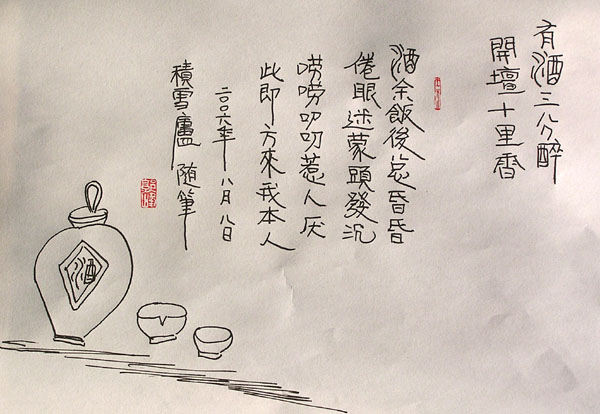 有酒三分醉
開壇十里香
酒余飯後总昏昏
倦眼迷蒙頭發沉
唠唠叨叨惹人厌
此即方來我本人
二〇〇六年八月八日
積雪廬 随筆
酒